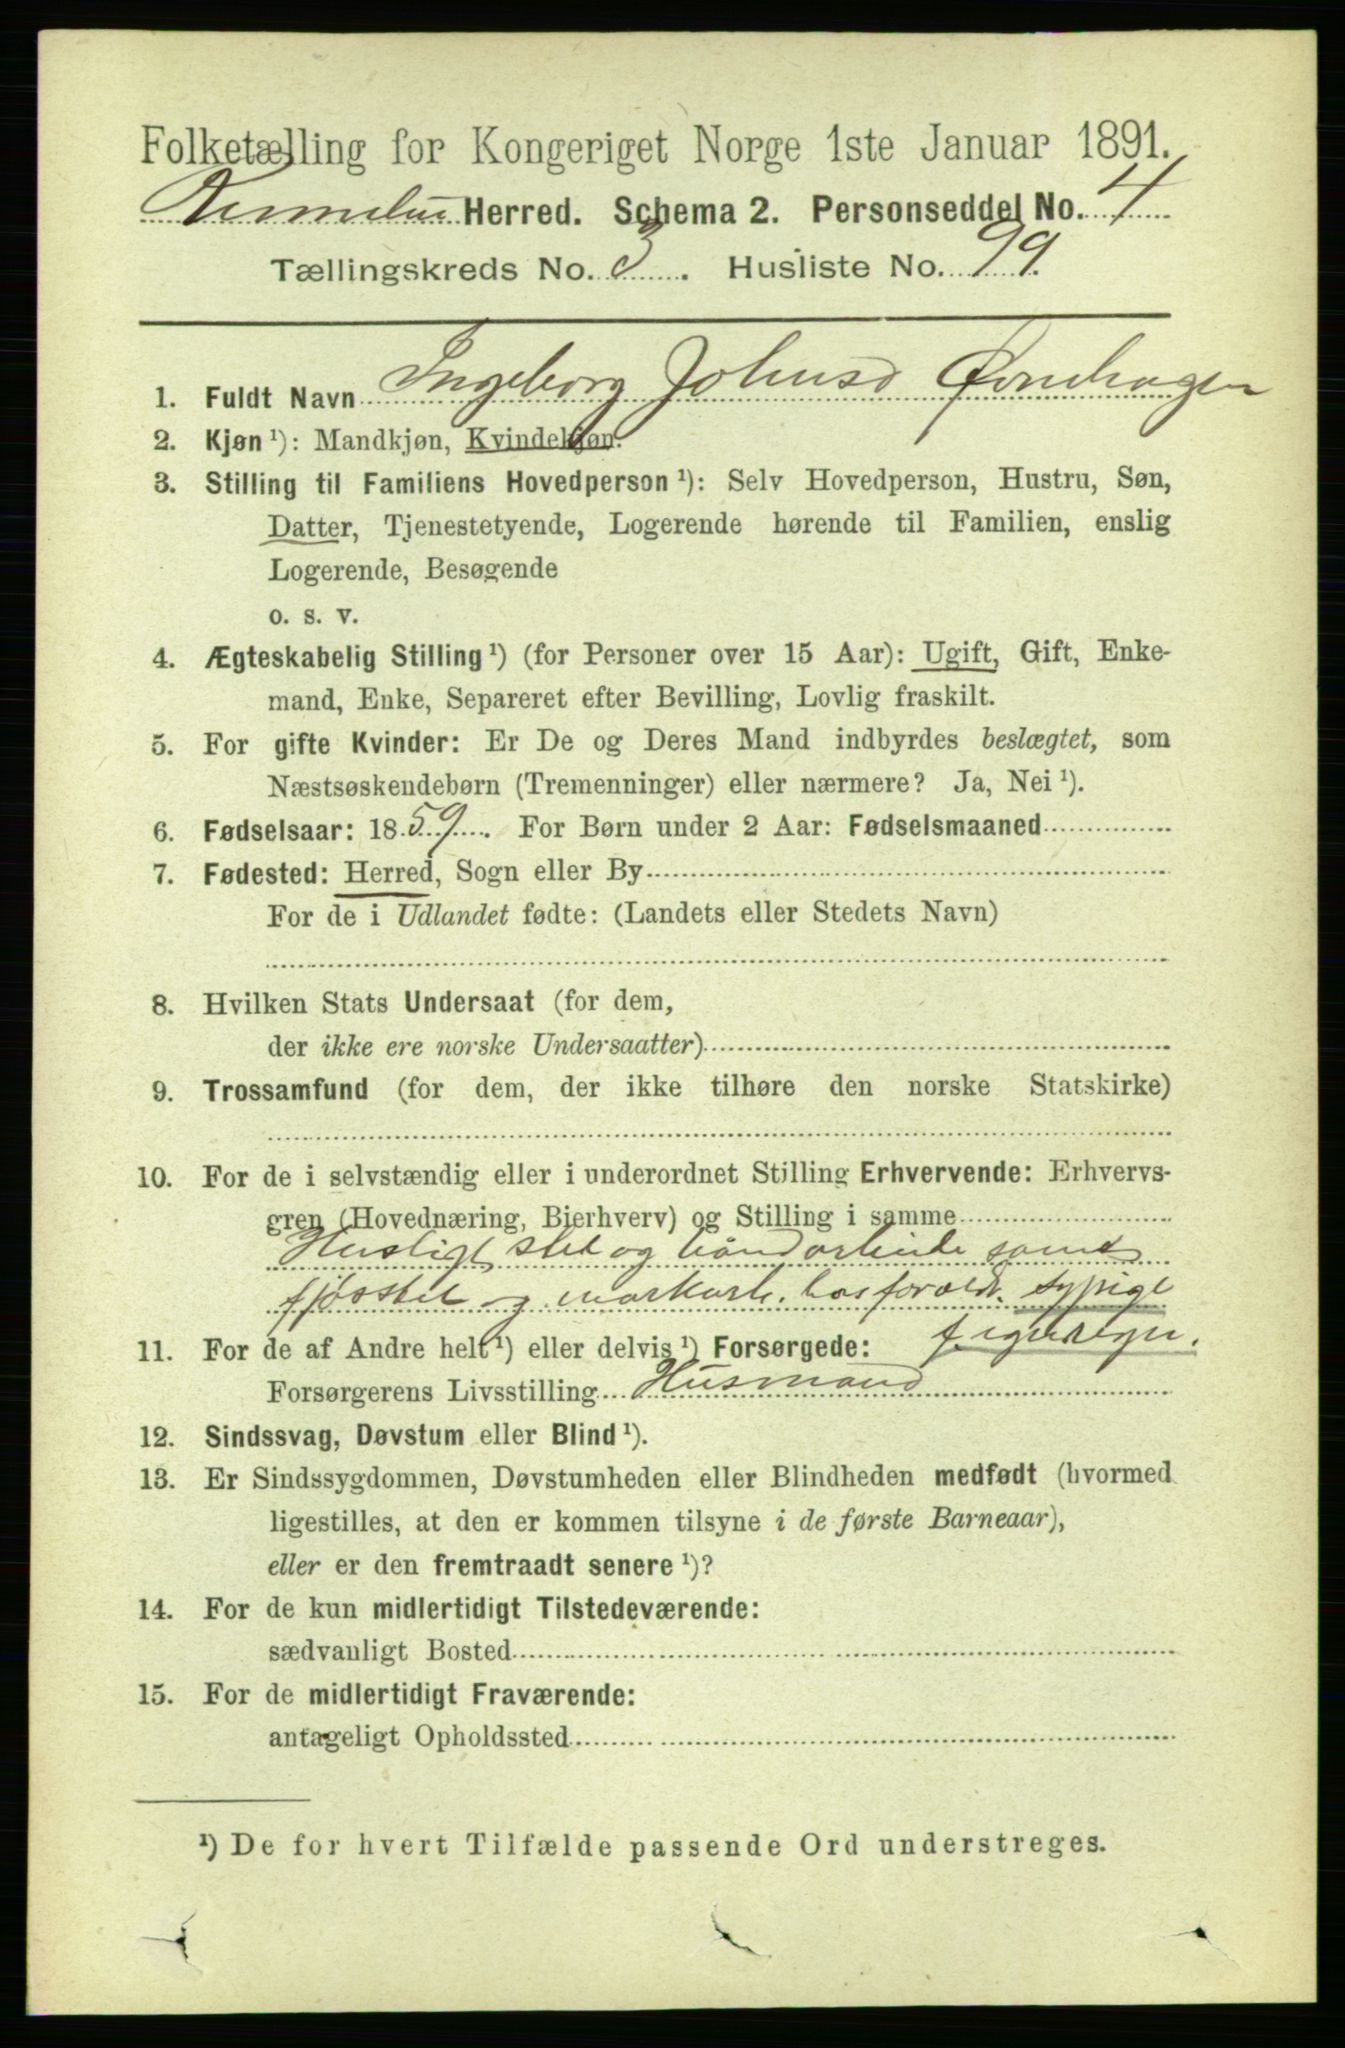 Folketælling for Kongeriget Norge 1ste Januar 1891.
Herred. Schema 2. Personseddel No. 4
Tællingskreds No. 3. Husliste No. 99.
1. Fuldt Navn Ingeborg Johnsd Ørnehagen
2. Kjøn ¹): Mandkjøn, Kvindekjøn.
3. Stilling til Familiens Hovedperson ¹): Selv Hovedperson, Hustru, Søn,
Datter, Tjenestetyende, Logerende hørende til Familien, enslig
Logerende, Besøgende
o. s. v.
4. Ægteskabelig Stilling ¹) (for Personer over 15 Aar): Ugift, Gift, Enke-
mand, Enke, Separeret efter Bevilling, Lovlig fraskilt.
5. For gifte Kvinder: Er De og Deres Mand indbyrdes beslægtet, som
Næstsøskendebørn (Tremenninger) eller nærmere? Ja, Nei ¹).
6. Fødselsaar: 1859. For Børn under 2 Aar: Fødselsmaaned
7. Fødested: Herred, Sogn eller By
For de i Udlandet fødte: (Landets eller Stedets Navn)
8. Hvilken Stats Undersaat (for dem,
der ikke ere norske Undersaatter)
9. Trossamfund (for dem, der ikke tilhøre den norske Statskirke)
10. For de i selvstændig eller i underordnet Stilling Erhvervende: Erhvervs-
gren (Hovednæring, Bierhverv) og Stilling i samme
Husligt stel og håndarbeide samt
fjøsstel og markarb. hos foræld. sypige
f. egen regn.
11. For de af Andre helt ¹) eller delvis ¹) Forsørgede:
Forsørgerens Livsstilling Husmand
12. Sindssvag, Døvstum eller Blind ¹).
13. Er Sindssygdommen, Døvstumheden eller Blindheden medfødt (hvormed
ligestilles, at den er kommen tilsyne i de første Barneaar),
eller er den fremtraadt senere ¹)?
14. For de kun midlertidigt Tilstedeværende:
sædvanligt Bosted
15. For de midlertidigt Fraværende:
antageligt Opholdssted
¹) De for hvert Tilfælde passende Ord understreges.